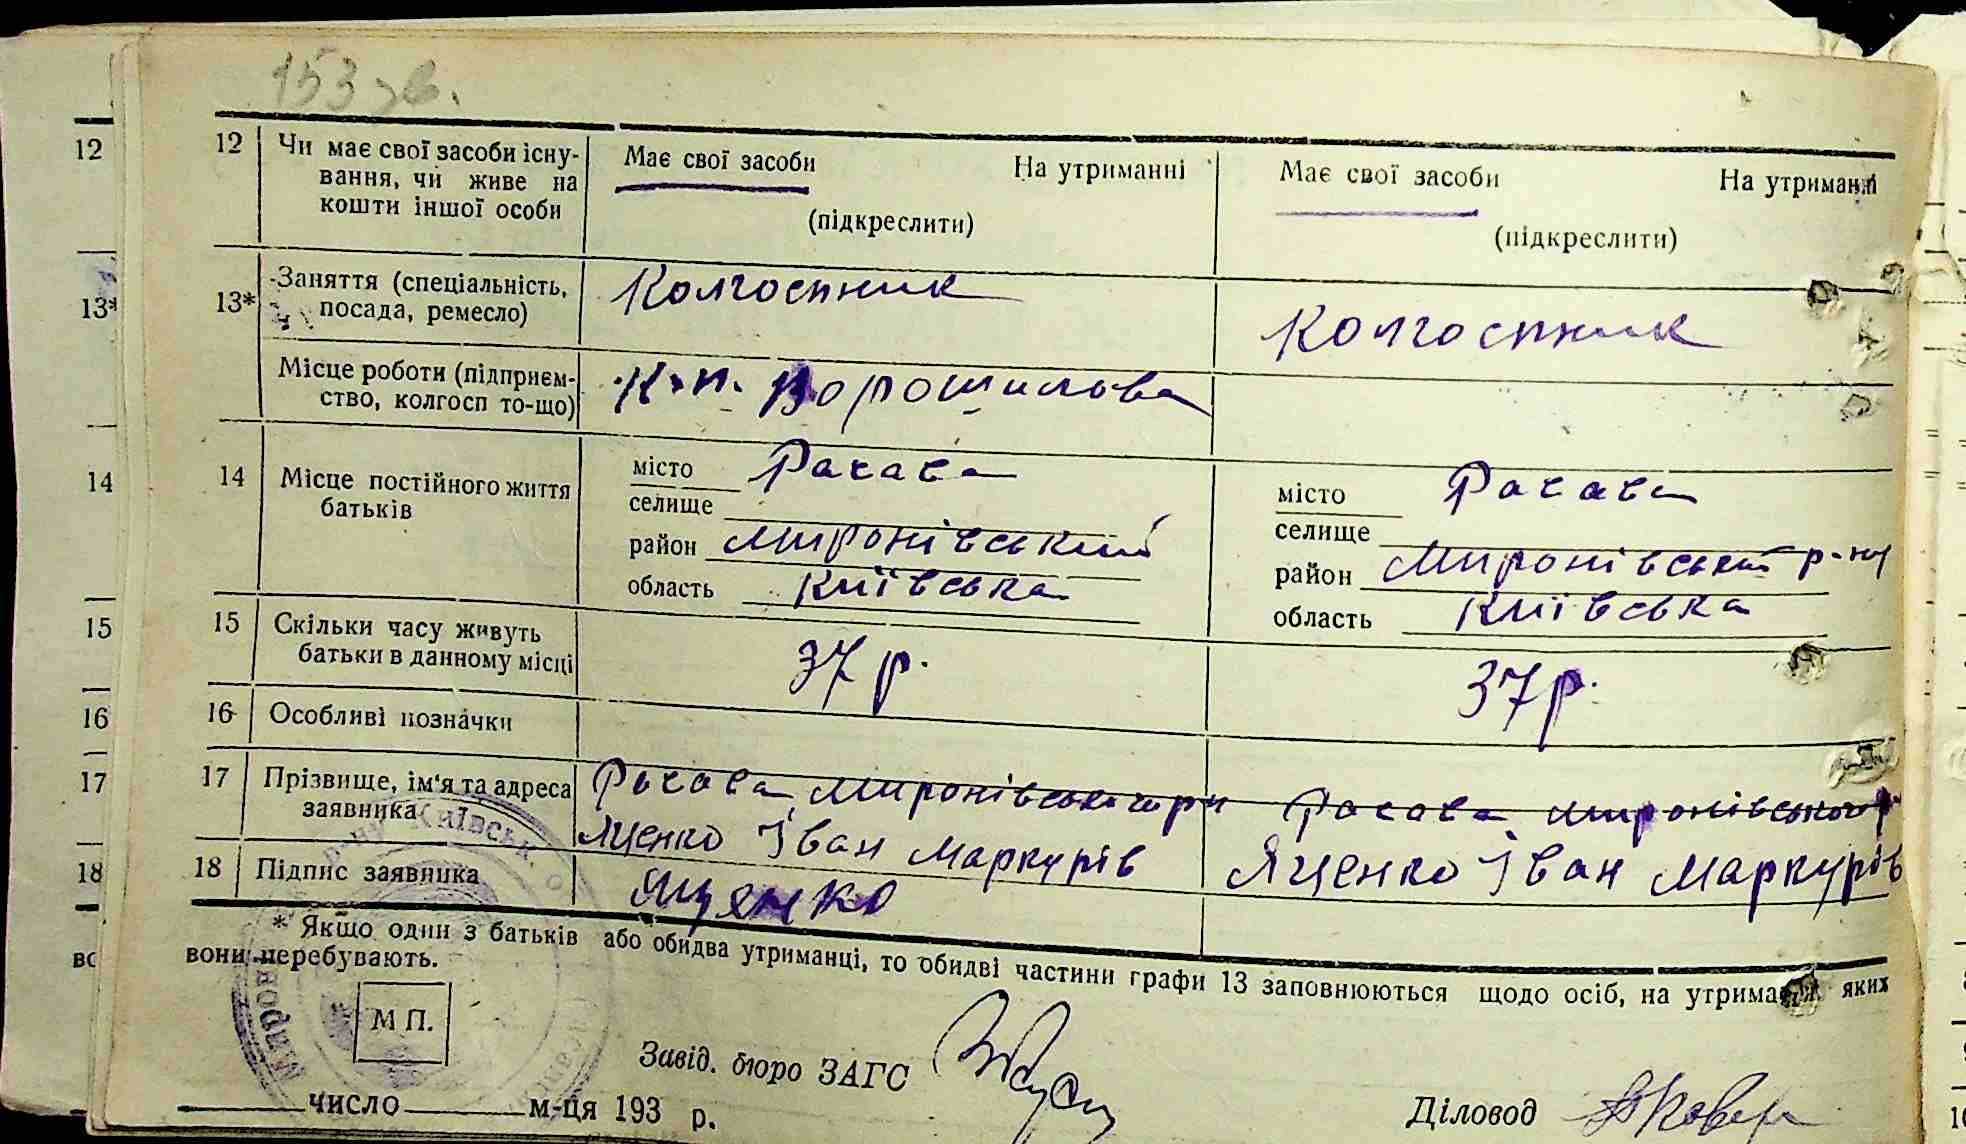 153 зв.
12 12 Чи має свої засоби існу- Має свої засоби На утриманні Має свої засоби На утриманні
вання, чи живе на
кошти іншої особи (підкреслити) (підкреслити)
13* 13* Заняття (спеціальність, Колгоспник Колгоспник
посада, ремесло)
Місце роботи (підприєм- К-п. Ворошилова
ство, колгосп то-що)
14 14 Місце постійного життя місто Рахава місто Рахава
батьків селище селище
район Миронівський район Миронівський р-ну
область Київська область Київська
15 15 Скільки часу живуть 37 р. 37 р.
батьки в данному місці
16 16 Особливі позначки
17 17 Прізвище, ім'я та адреса Рахава Миронівського р-н Рахава Миронівського р
заявника Яценко Іван Маркурів Яценко Іван Маркурів
18 18 Підпис заявника Яценко
* Якщо один з батьків або обидва утриманці, то обидві частини графи 13 заповнюються щодо осіб, на утриманні яких
вони перебувають.
р-ну Київськ. о
М П.
Завід. бюро ЗАГС
число м-ця 193 р.
Діловод